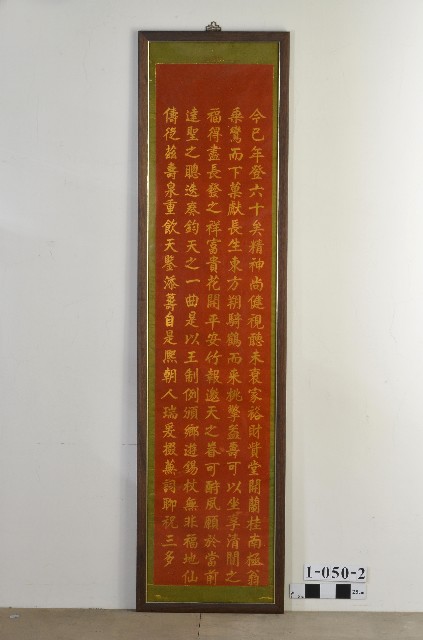 今已年登六十矣精神尚健視聽未衰家裕財貲堂開蘭桂南極翁
乘鸞而下菓獻長生東方朔騎鶴而來桃擎益壽可以坐享清閒之
福得盡長發之祥富貴花開平安竹報邀天之眷可酧夙願於當前
達聖之聰迭奏鈞天之一曲是以王制例頒鄉遊錫杖無非福地仙
儔從茲壽泉重飲天鑒添籌自是熙朝人瑞爰掇蕪詞聊祝三多
1-050-2